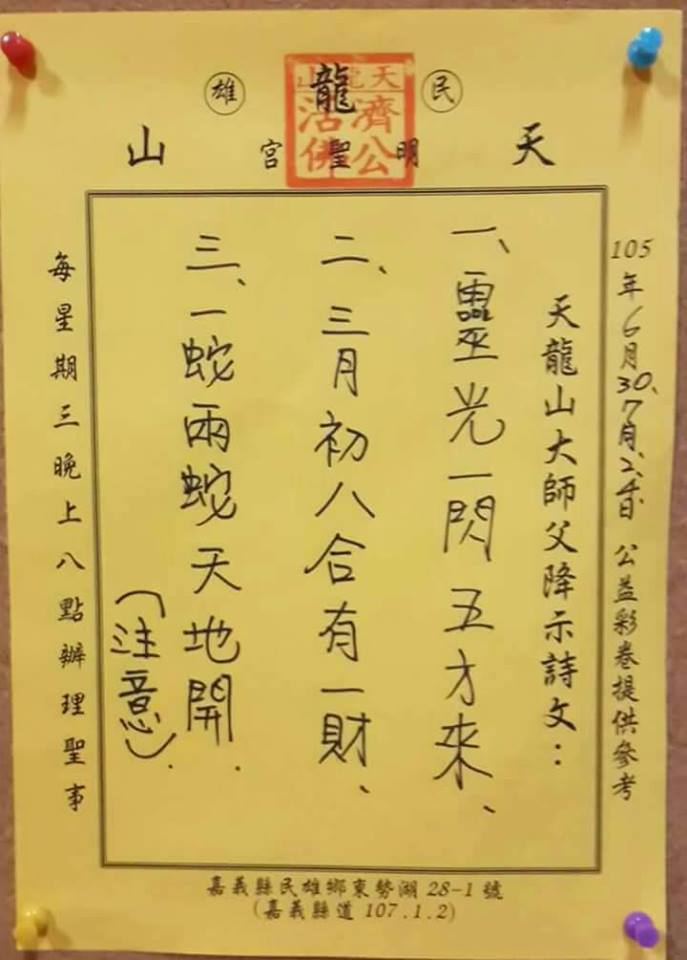 民雄
天龍山
明聖宮
天龍山
濟公
活佛
105年6月30、7月2、 公益彩卷提供參考
天龍山大師父降示詩文：
一、靈光一閃五方來、
二、三月初八合有一財、
三、一蛇兩蛇天地開.
（注意）.
每星期三晚上八點辦理聖事
嘉義縣民雄鄉東勢湖28-1號
(嘉義縣道107.1.2)